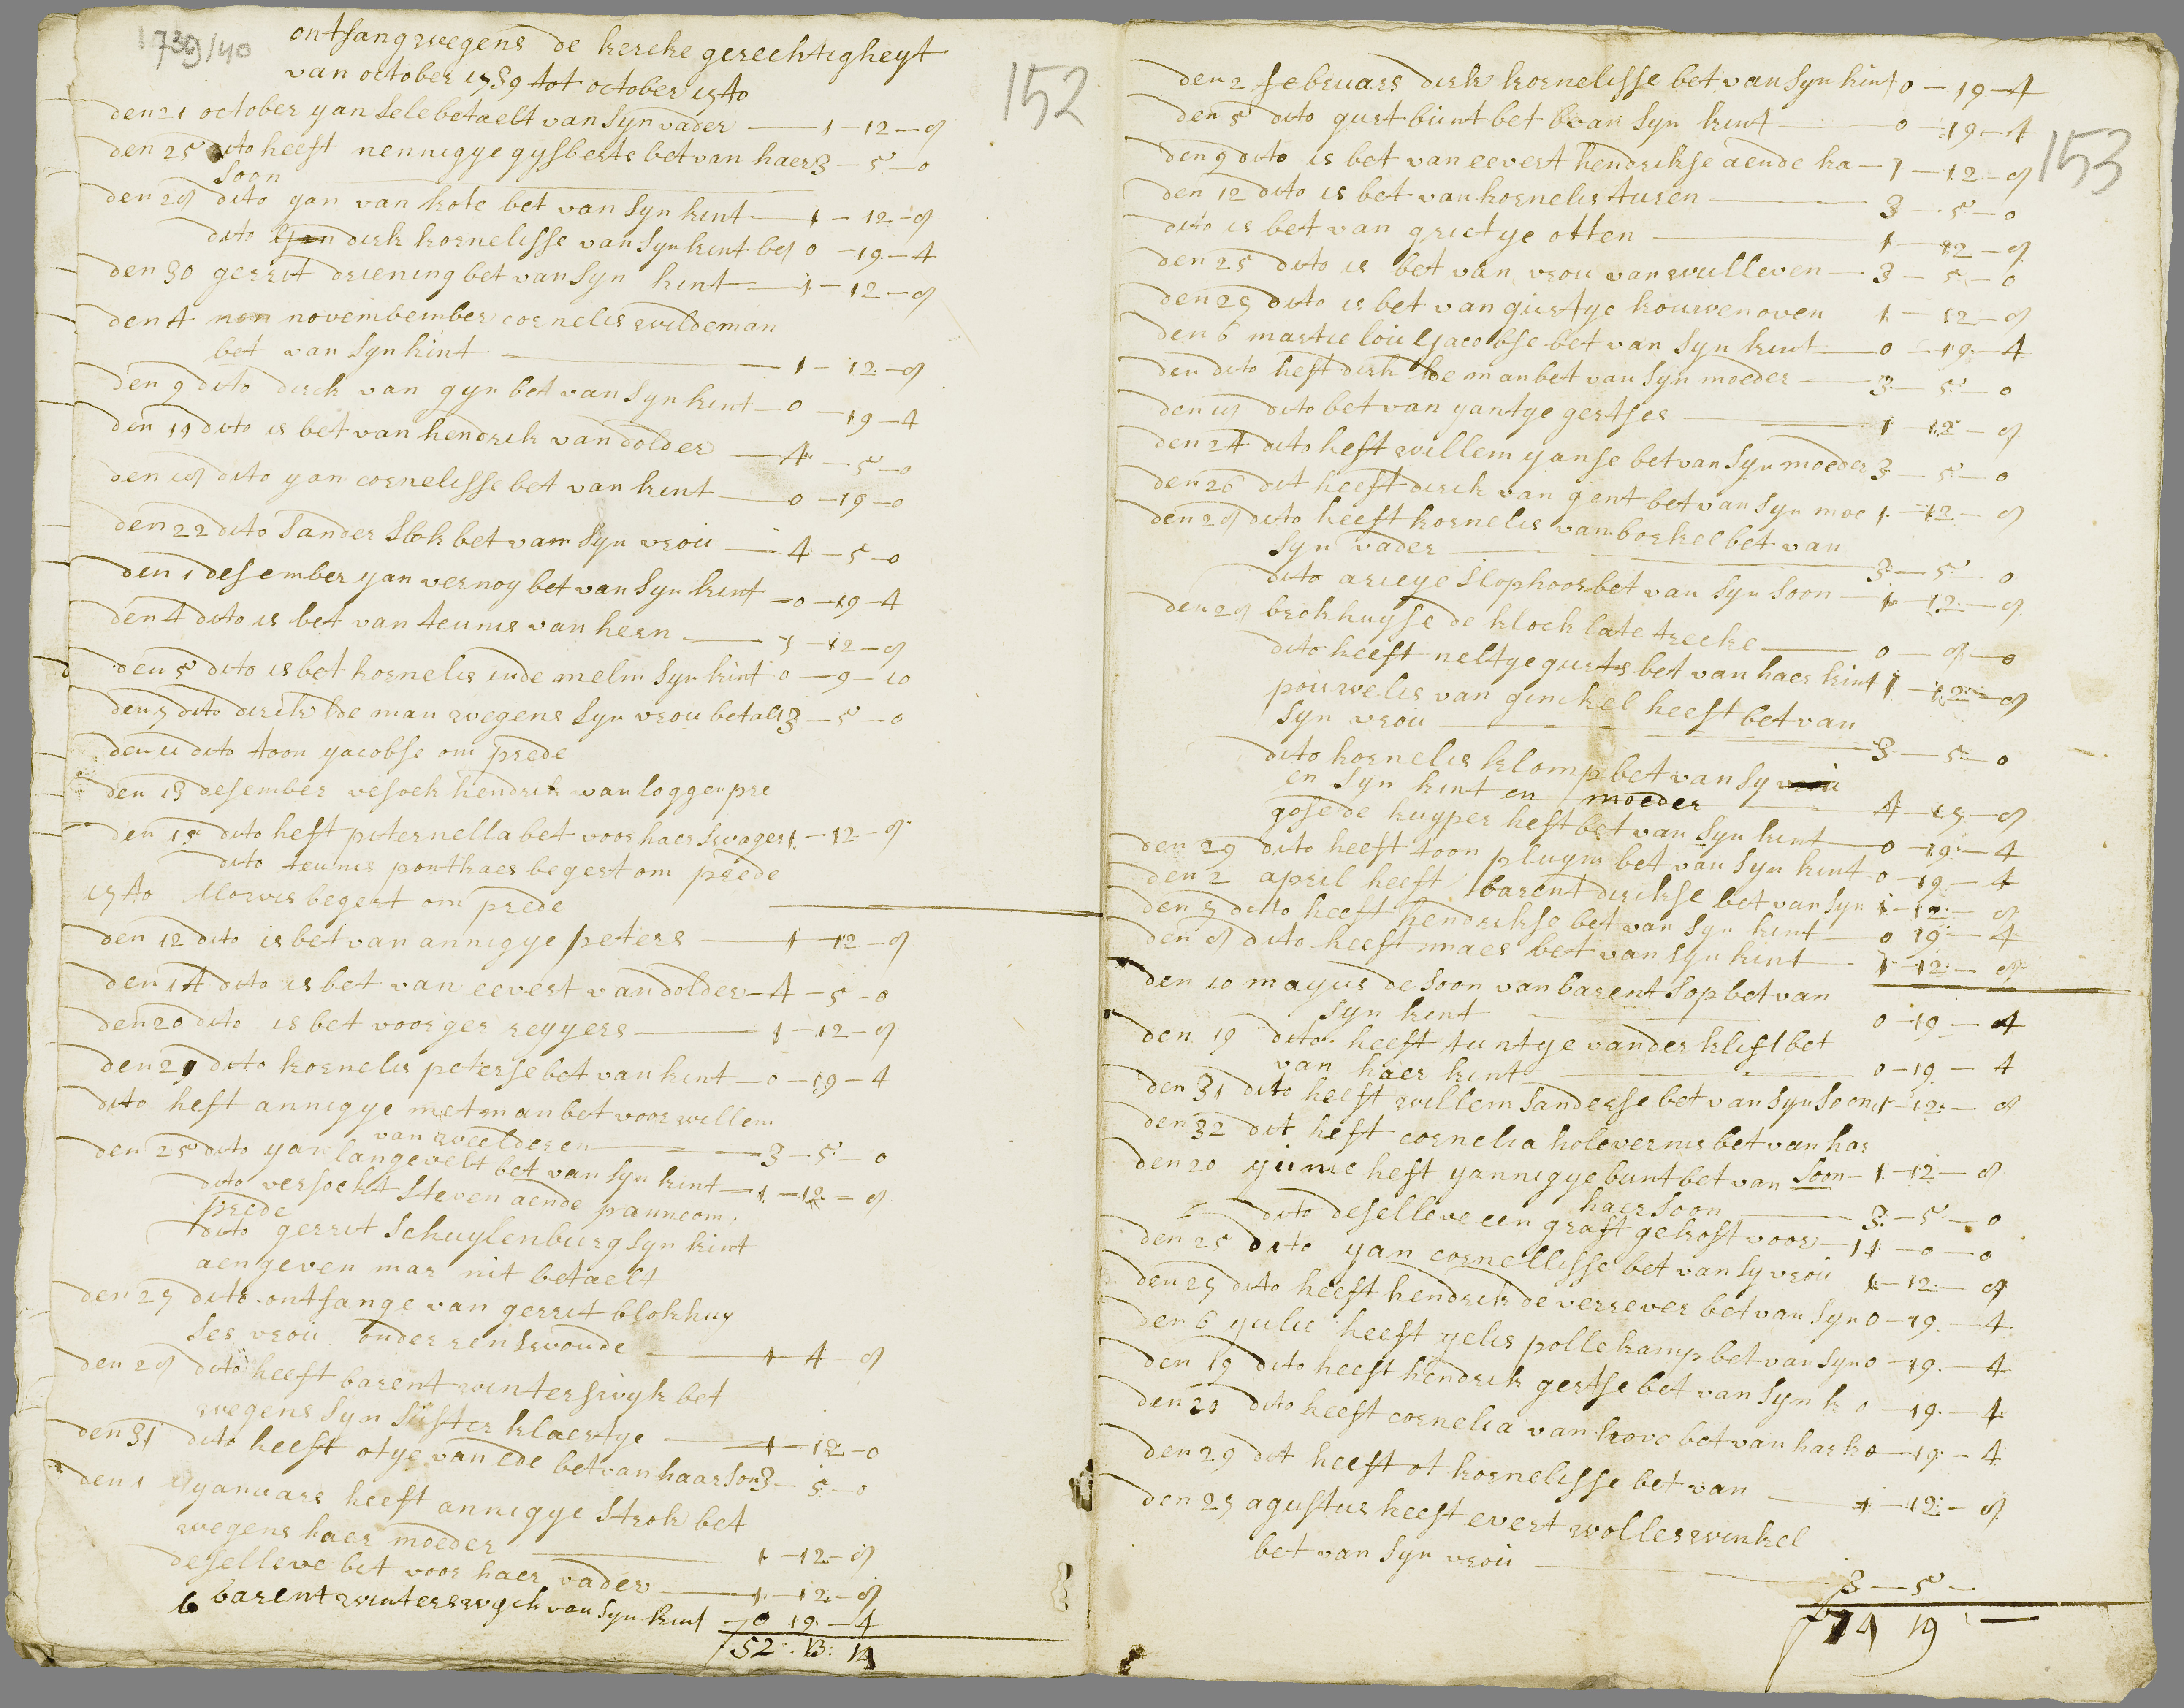 1739/40
ontfang wegens de kercke gerechtigheyt
van october 1739 tot october 1740
152
den 21 october yan sele betaelt van syn vader — 1 — 12 — 8
den 25 dito heeft nennigye gysberts bet van haer 3 — 5 — 0
soon
den 28 dito yan van kote bet van syn kint — 1 — 12 — 8
dito dirk kornelisse van syn kint bet 0 — 19 — 4
den 30 gerrit driening bet van syn kint — 1 — 12 — 8
den 4 novembember cornelis wildeman
bet van syn kint — 1 — 12 — 8
den 9 dito dirck van gyn bet van syn kint — 0 — 19 — 4
den 11 dito is bet van hendrik van dolder — 4 — 5 — 0
den 18 dito yan cornelisse bet van kint — 0 — 19 — 0
den 22 dito sander slok bet vam syn vrou — 4 — 5 — 0
den 1 desember yan vernoy bet van syn kint — 0 — 19 — 4
den 4 dito is bet van teunis van hern — 1 — 12 — 8
den 5 dito is bet kornelis inde melm syn kint 0 — 9 — 10
den 7 dito dirck de man wegens syn vrou betalt 3 — 5 — 0
den 11 dito toon yacobse om prede
den 13 desember vesoek hendrik van loggen pre
den 15 dito heft peternella bet voor haer swager 1 — 12 — 8
dito teunis ponthaer begert om prede
1740 Morris begert om prede
den 12 dito is bet van annigye peters — 1 — 12 — 8
den 14 dito is bet van eevert van dolder — 4 — 5 — 0
den 20 dito is bet voor ger reyyers — 1 — 12 — 8
den 21 dito kornelis peterse bet van kint — 0 — 19 — 4
dito heft annigye metman bet voor willem
van weelderen — 3 — 5 — 0
den 25 dito yan langevelt bet van syn kint — 1 — 12 — 8
dito versockt steven aende panne om
prede
dito gerrit schuylenburg syn kint
aengeven mar nit betaelt
den 27 dito ontfange van gerrit blokhuy
ses vrou onder renswoude — 1 — 4 — 8
den 28 dito heeft barent winterswyk bet
wegens syn suster klaertye — 1 — 12 — 0
den 31 dito heeft otye van ede bet van haar son 3 — 5 — 0
den 1 yanuars heeft annigye strok bet
wegens haer moeder — 1 — 12 — 8
deselleve bet voor haer vader — 1 — 12 — 8
6 barent winterswyck van syn kint — 0 19 — 4
f 52 : 13 : 14
153
den 2 februars dirk kornelisse bet van syn kint 0 — 19 — 4
den 5 dito gurt bunt bet van syn kint — 0 — 19 — 4
den 9 dito is bet van eevert hendrikse aende ha — 1 — 12 — 8
den 12 dito is bet van kornelis turen — 3 — 5 — 0
dito is bet van grietye otten — 1 — 12 — 8
den 25 dito is bet van vrou van wulleven — 3 — 5 — 0
den 27 dito is bet van girtye kouwenoven 1 — 12 — 8
den 6 martie loui yacobse bet van syn kint — 0 — 19 — 4
den dito heft dirk de man bet van syn moeder — 3 — 5 — 0
den 18 dito bet van yantye gertses — 1 — 12 — 8
den 24 dito heft willem yanse bet van syn moeder 3 — 5 — 0
den 26 dit heeft dirck van gent bet van syn moe 1 — 12 — 8
den 28 dito heeft kornelis van borkel bet van
syn vader — 3 — 5 — 0
dito arieye slophoor bet van syn soon — 1 — 12 — 8
den 28 brokhuyse de klock late trecke — 0 — 8 — 0
dito heeft neltye gurts bet van haer kint 1 — 12 — 8
pouwelis van ginckel heeft bet van
syn vrou — 3 — 5 — 0
dito kornelis klomp bet van sy
en syn kint en moeder — 4 — 17 — 8
gose de kuyper heft bet van syn kint — 0 — 19 — 4
den 29 dito heeft toon pluym bet van syn kint 0 — 19 — 4
den 2 april heeft barent dirckse bet van syn 1 — 12 — 8
den 7 ditto heeft hendrikse bet van syn kint — 0 19 — 4
den 8 dito heeft maes bet van syn kint — 1 — 12 — 8
den 10 mayus de soon van barent sop bet van
syn kint — 0 — 19 — 4
den 19 dito heeft tuntye vander klift bet
van haer kint — 0 — 19 — 4
den 31 dito heeft willem sanderse bet van syn soon 1 — 12 — 8
den 32 dit heft cornelia kolevernis bet van har
soon — 1 — 12 — 8
den 20 yunie heft yannigye bunt bet van
haer soon — 3 — 5 — 0
dito deselleve een graft gekoft voor — 11 — 0 — 0
den 25 dito yan cornellisse bet van sy vrou 1 — 12 — 8
den 27 dito heeft hendrik de verrever bet van syn 0 — 19 — 4
den 6 yulie heeft yelis pollekamp bet van syn 0 — 19 — 4
den 19 dito heeft hendrick gertse bet van syn k 0 — 19 — 4
den 20 dito heeft cornelia van hove bet van har k 0 — 19 — 4
den 29 dit heeft ot kornelisse bet van — 1 — 12 — 8
den 27 agustus heeft evert wolleswinkel
bet van syn vrou — 3 — 5 —
f 74 19 : —